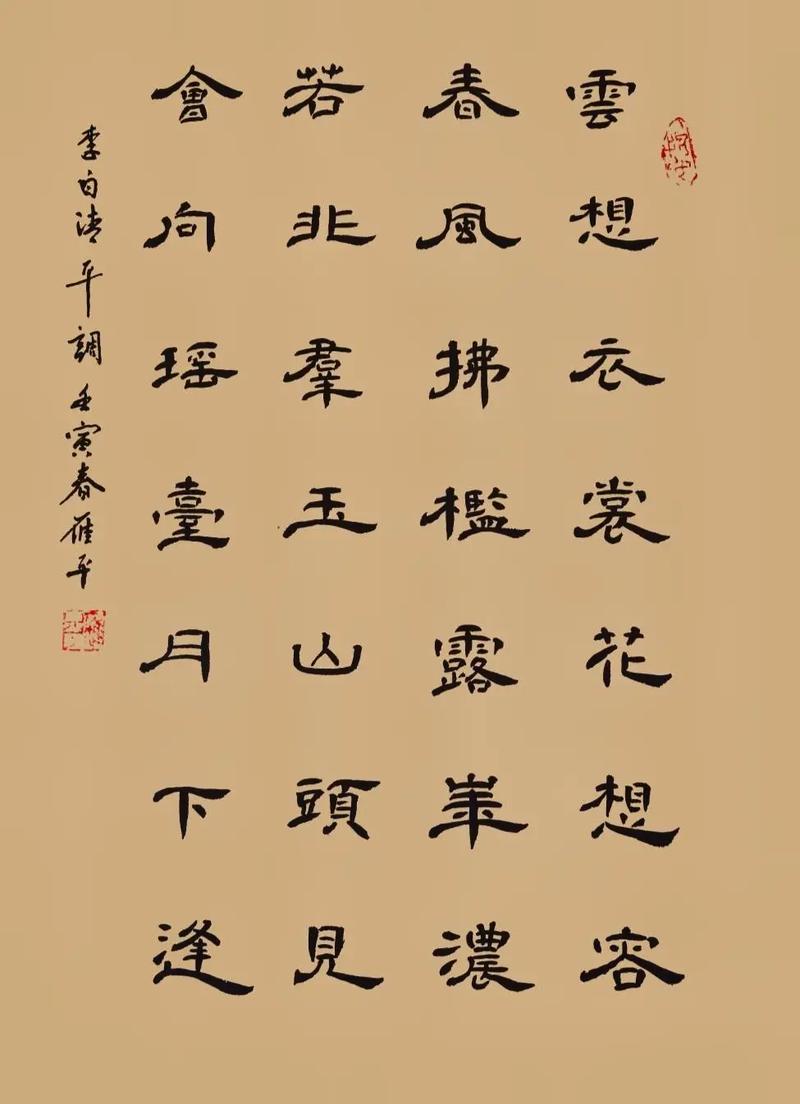 雲想衣裳花想容
春風拂檻露華濃
若非羣玉山頭見
會向瑶臺月下逢
李白清平調 壬寅春雁平